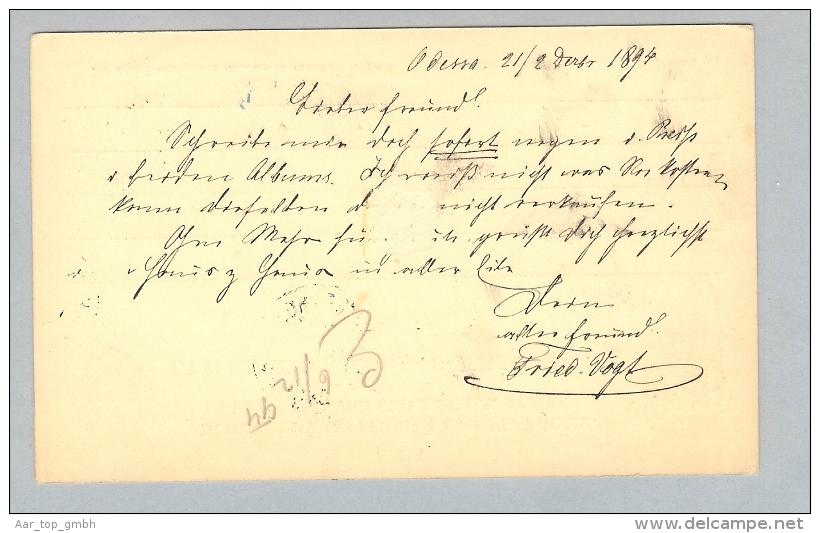 Odessa. 21/2 Dezbr 1894
Lieber Freund!
Schreibe mir doch sofort wegen d. Preise
d beiden Albums. Ich weiß nicht was Sie kosten,
kann dieselben d nicht verkaufen.
Ohne Mehr für grüßt Dich herzlichst
v Haus z Haus in aller Eile
Dein
alter Freund
Fried. Vogt
6/12 94
Aar_top_gmbh
www.delcampe.net